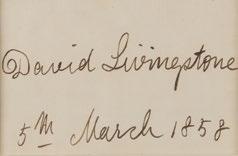 David Livingstone
5th March 1858